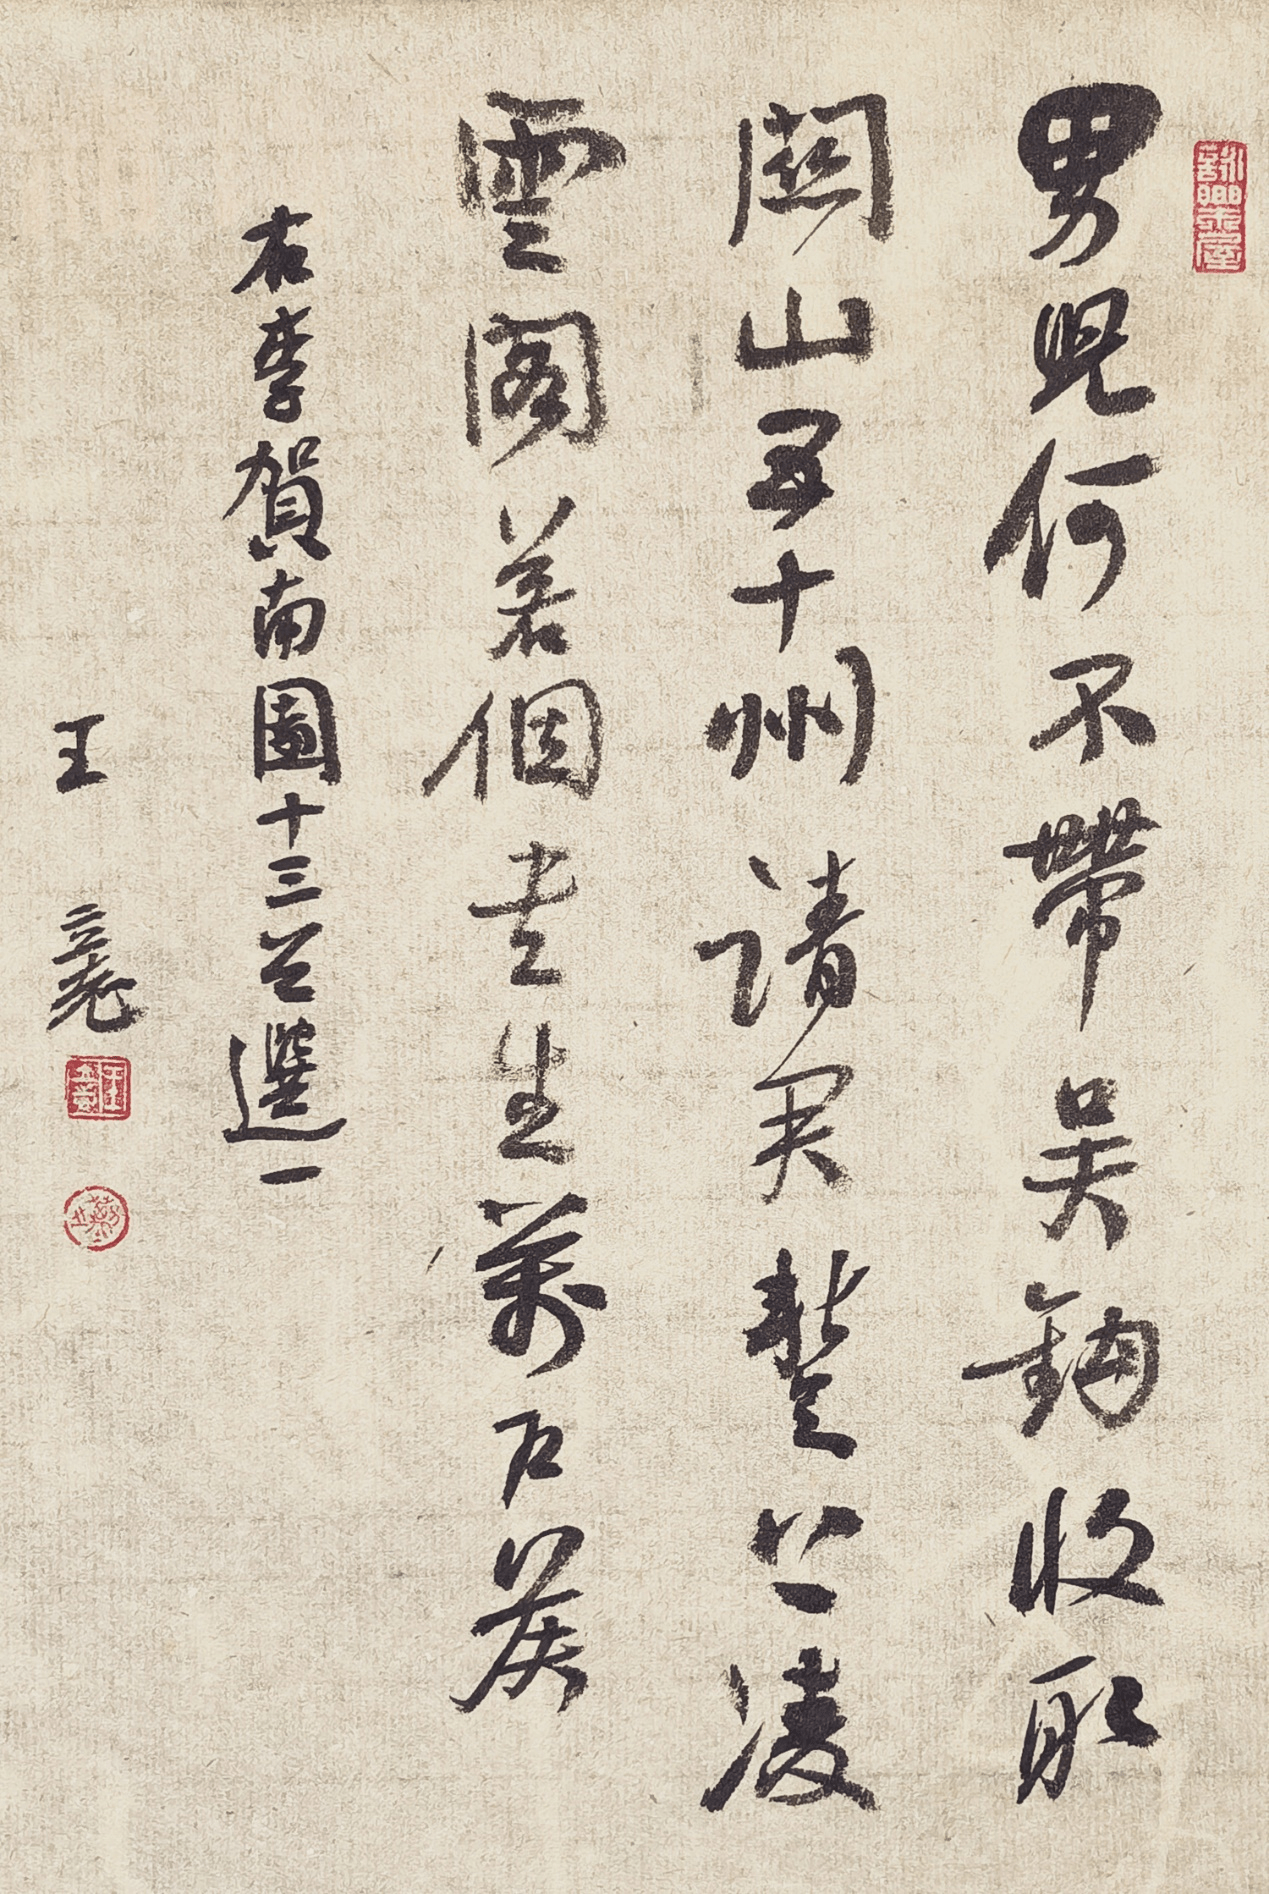 男兒何不帶吳鈎收取
關山五十州請君暫上凌
雲閣若個書生萬戶侯
右李賀南園十三首選一
王